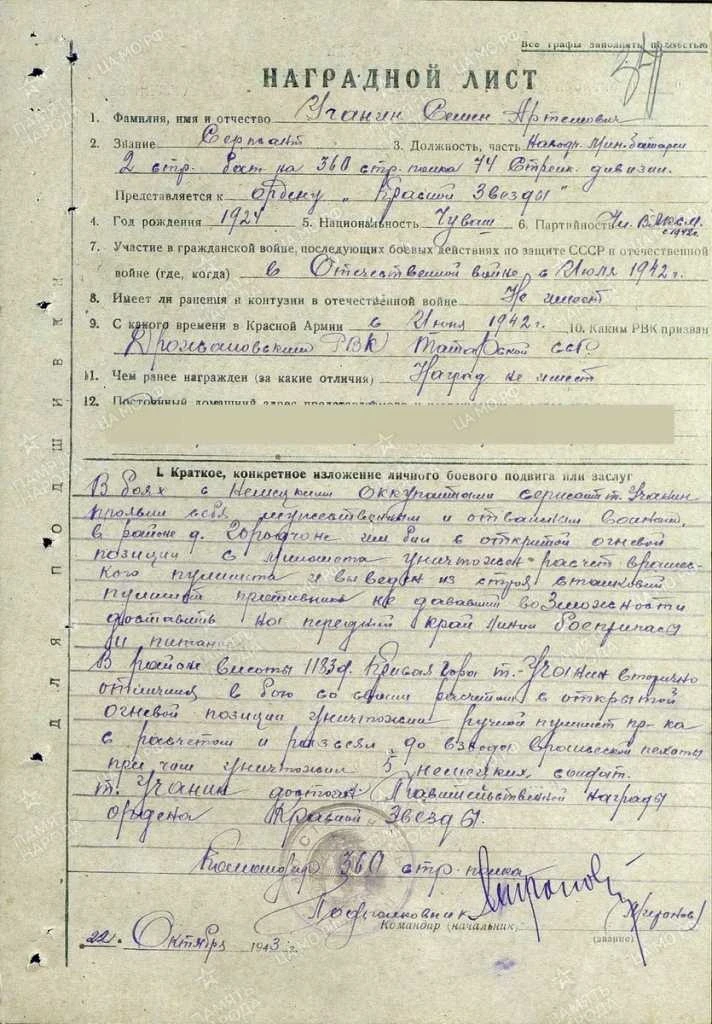 Все графы заполнять полностью
НАГРАДНОЙ ЛИСТ
1. Фамилия, имя и отчество Учанин Семен Артемович
2. Звание Сержант 3. Должность, часть Наводч. Мин. батареи
2 стр. бат-на 360 стр. полка 74 Стрелк. дивизии.
Представляется к ордену „Красной Звезды"
4. Год рождения 1924 5. Национальность Чуваш 6. Партийность Чл. ВЛКСМ.
с 1942г.
7. Участие в гражданской войне, последующих боевых действиях по защите СССР и отечественной
войне (где, когда) в Отечественной войне с Июля 1942 г.
8. Имеет ли ранения и контузии в отечественной войне Не имеет
9. С какого времени в Красной Армии с Июня 1942г. 10. Каким РВК призван
РВК Татарской ССР.
11. Чем ранее награжден (за какие отличия) Наград не имеет
12. Постоянный домашний адрес
I. Краткое, конкретное изложение личного боевого подвига или заслуг
В боях с немецкими оккупантами сержант т. Учанин
проявил себя мужественным и отважным воином,
в районе д. им был с открытой огневой
позиции с миномета уничтожен расчет вражес-
кого пулемета и выведен из строя станковый
пулемет противника не дававший возможности
доставить на передний край линии боеприпасы
и питание.
В районе высоты Кривая гора т. Учанин вторично
отличился в бою со своим расчетом с открытой
огневой позиции уничтожил ручной пулемет пр-ка
с расчетом и рассеял до взвода вражеской пехоты
при чем уничтожил 5 немецких солдат.
т. Учанин достоин Правительственной награды
ордена Красной Звезды.
Командир 360 стр. полка
Подполковник (Миронов)
Командир (начальник)
(звание)
22. Октября 1943 г.
ДЛЯ ПОДШИВКИ
ПАМЯТЬ НАРОДА
ЦАМО.РФ